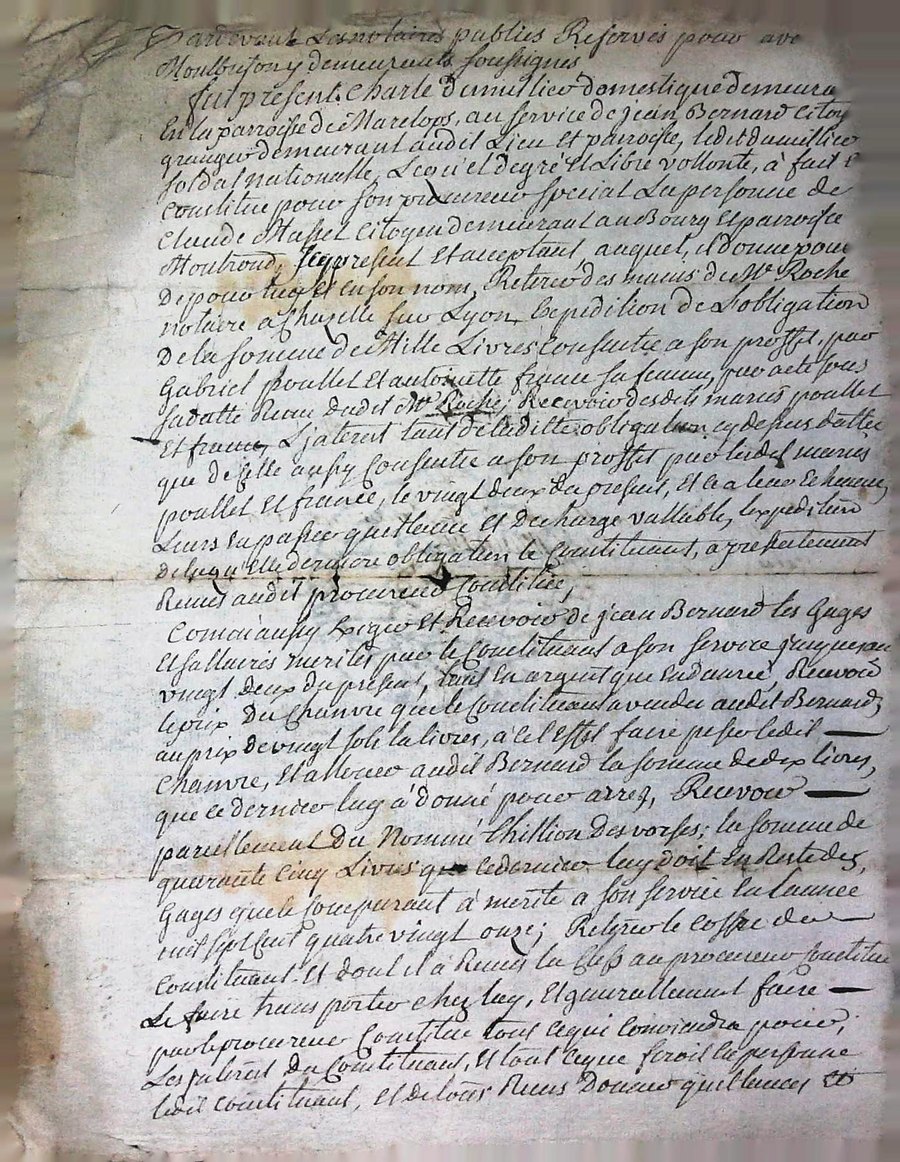 Pardevant Les notaires publics Reservés pour ave
Montbrison y demeurants soussignés
fut présent Charle Dumillieu domestique demeura
En la parroisse de Marelops, au service de jean Bernard Citoy
granger demeurant audit Lieu Et parroisse, ledit dumillieu
soldat nationalle, Lequel de gré Et Libre vollonté, à fait E
Constitué pour son procureur special La personne de
Claude Massel Citoyen demeurant au Bourg Et parroisse
Montrond, Icy présent Et acceptant, auquel, il donne pour
De pour luy Et en son nom, Retirer des mains de Me Roche
notaire a Chazelle sur Lyon, Expedition de L'obligation
De la somme de Mille Livres Consentie a son proffit, par
Gabriel poullet Et antoinette france sa femme, par acte sous
sa datte Recue dudit Me Roche; Recevoir desdits mariés poullet
Et france, L'interest tant de laditte obligation cy dessus dattée
que de Celle aussy Consentie a son proffit par lesdit mariés
poullet Et france, le vingt deux du présent, Et a leur Echeance,
Leurs En passer quittance Et décharge vallable, l'expedition
de laquelle derniere obligation le Constituant, a présentement
Remis audit procureur Constitué,
Comme aussy Exiger Et Recevoir de jean Bernard les Gages
Et sallaires merités par le Constituant a son service jusques au
vingt deux du présent, tant En argent que En danrée, Recevoir
le prix du Chanvre que le Constituant a vendu audit Bernard,
au prix de vingt sols la livres, a Cet Effet faire peser ledit
Chanvre, Et allouer audit Bernard la somme de dix livres,
que ce dernier luy à donné pour arres, Recevoir
pareillement du Nommé Thillion Des vorses; la somme de
quarante Cinq Livres que ce dernier luy doit En Reste des
Gages que le Comparant à mérité a son service En l'année
mil sept Cent quatre vingt onze; Retirer le Coffre du
Constituant Et dont il à Remis la Clefs au procureur Constitué
Le faire transporter chez luy, Et generallement faire
par le procureur Constitué tout Ce qui Conviendra pour;
Les Interest du Constituant, Et tout Ce que feroit En personne
ledit Constituant, Et de tous Reçus Donner quittances Et